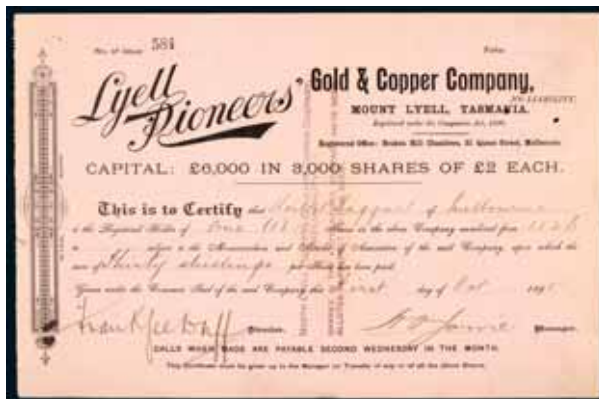 No. of Issue 584
Lyell Pioneers'
Gold & Copper Company,
NO-LIABILITY.
MOUNT LYELL, TASMANIA.
Registered under the Companies Act, 1890.
Registered Office: Broken Hill Chambers, 31 Queen Street, Melbourne
CAPITAL: £6,000 IN 3,000 SHARES OF £2 EACH.
This is to Certify that of Melbourne
is the Registered Holder of One Share in the above Company numbered from
subject to the Memorandum and Articles of Association of the said Company upon which the
sum of Thirty shillings per Share has been paid.
Given under the Common Seal of the said Company this First day of Oct 189
Director. Manager.
CALLS WHEN MADE ARE PAYABLE SECOND WEDNESDAY IN THE MONTH.
This Certificate must be given up to the Manager on Transfer of any or all the above Shares.